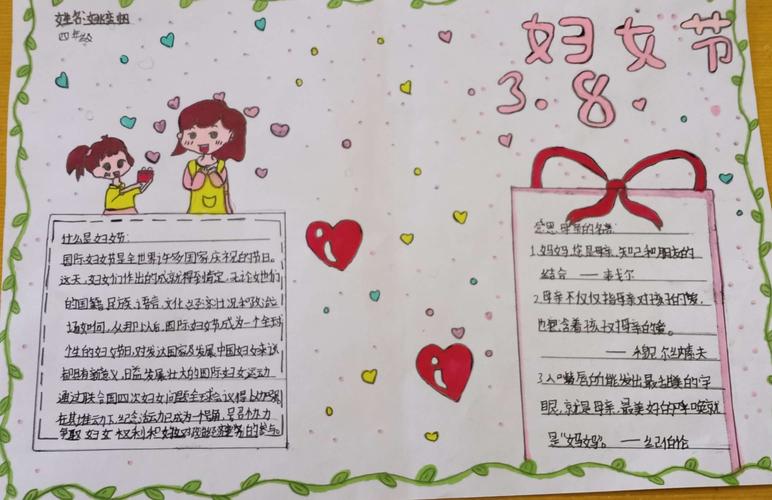 姓名:
四年级
妇女节
3.8
什么是妇女节:
国际妇女节是全世界许多国家庆祝的节日。
这天,妇女们作出的成就得到肯定,无论她们
的国籍,民族,语言,文化,经济状况和政治立
场如何,从那以后,国际妇女节成为一个全球
个生的妇女节日,对发达国家及发展,中国妇女来说
都有新意义,日益发展壮大的国际妇女运动
通过联合国四次妇女问题全球会议得以加强
在其推动下,纪念活动已成为一个号角,号召协力
争取妇女权利和妇女对政治经济的参与。
感恩母亲的名言:
1.妈妈,您是母亲,知己和朋友的
结合 — 泰戈尔
2.母亲不仅仅指母亲对孩子的爱,
也包含着孩子对母亲的爱。
3.人的嘴唇的能发出最甜美的字
眼,就是母亲,最美好的呼唤就
是"妈妈"。 — 纪伯伦